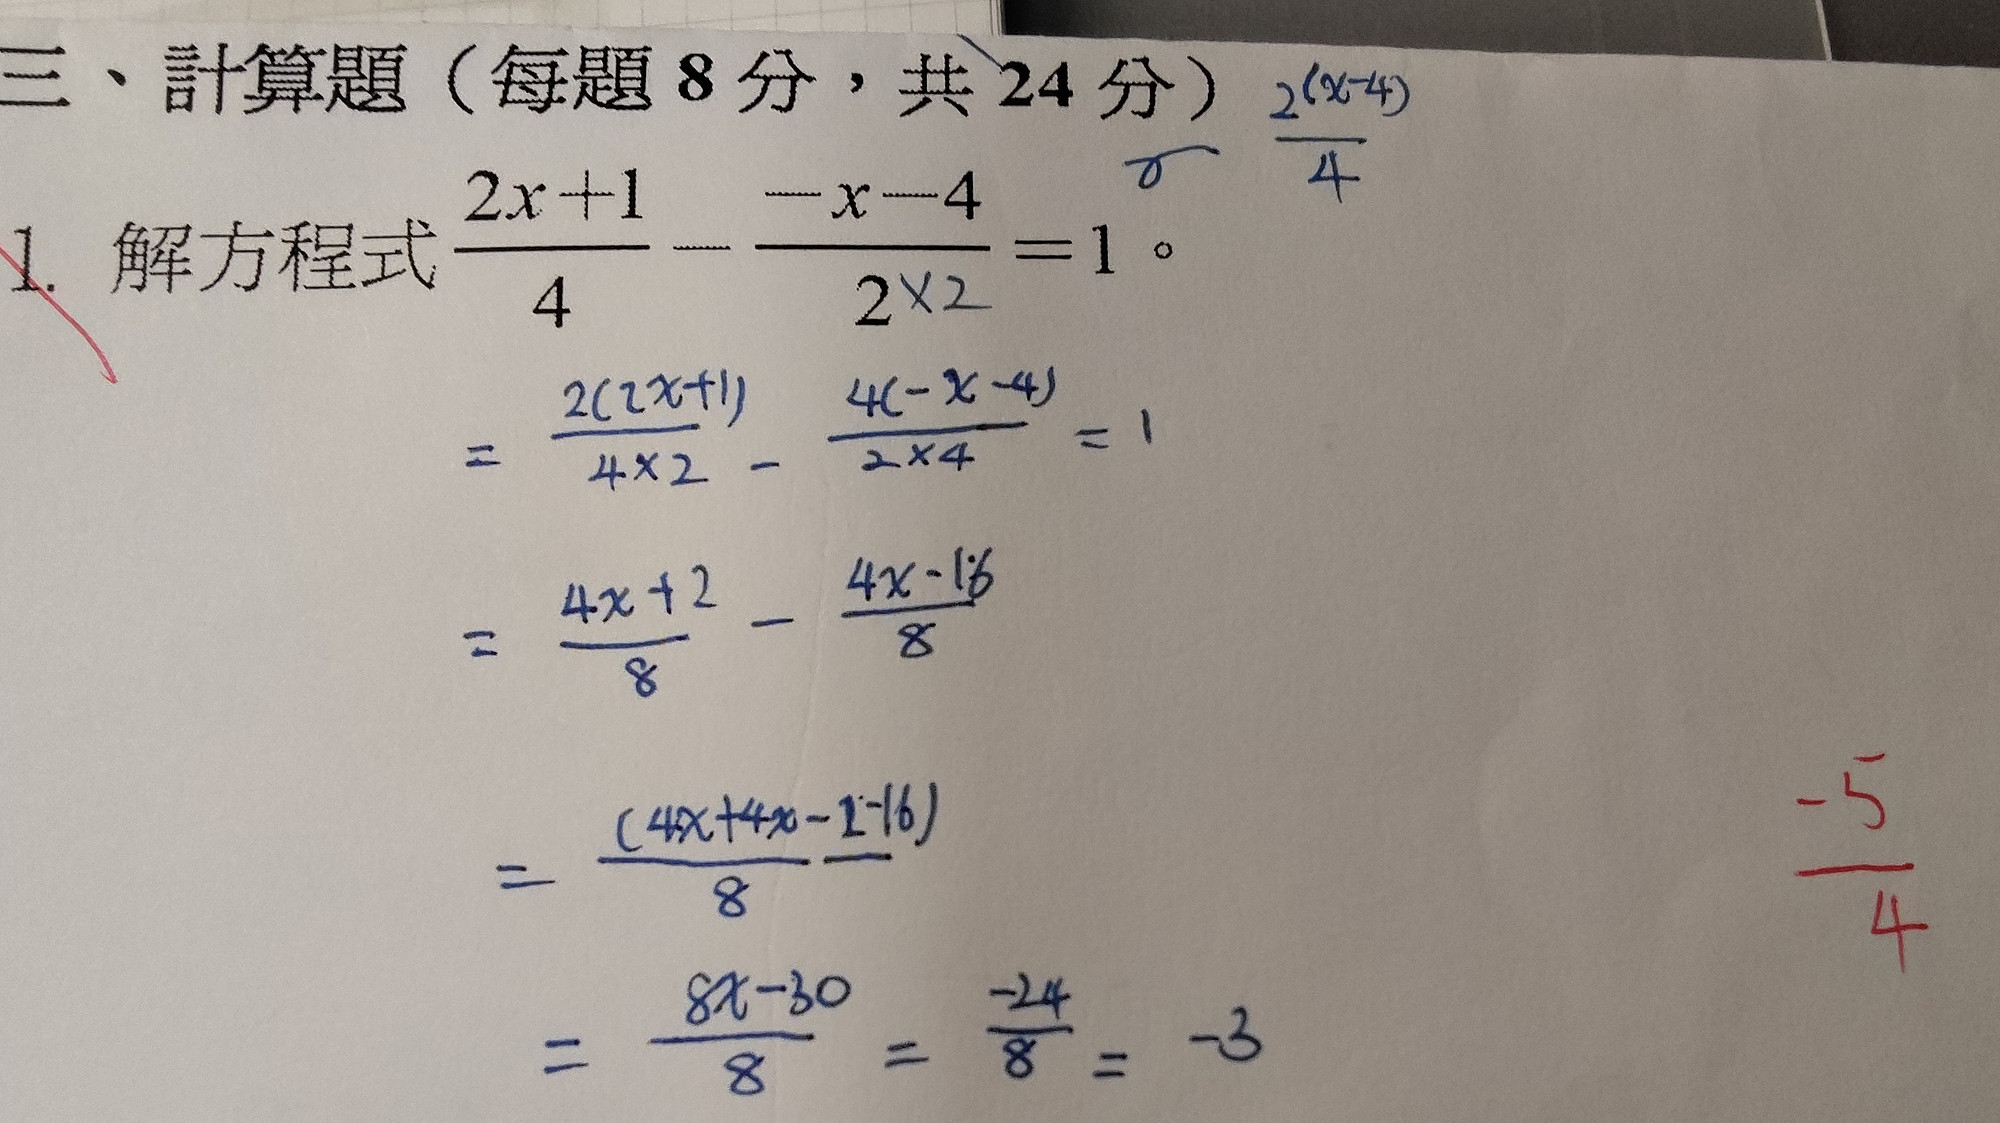 三、計算題（每題 8 分，共 24 分） 2(x-4)/4
1. 解方程式 (2x+1)/4 - (-x-4)/2 = 1。 ×2
= 2(2x+1)/4×2 - 4(-x-4)/2×4 = 1
= 4x+2/8 - 4x-16/8
= (4x+4x-2-16)/8
-5/4
= 8x-30/8 = -24/8 = -3